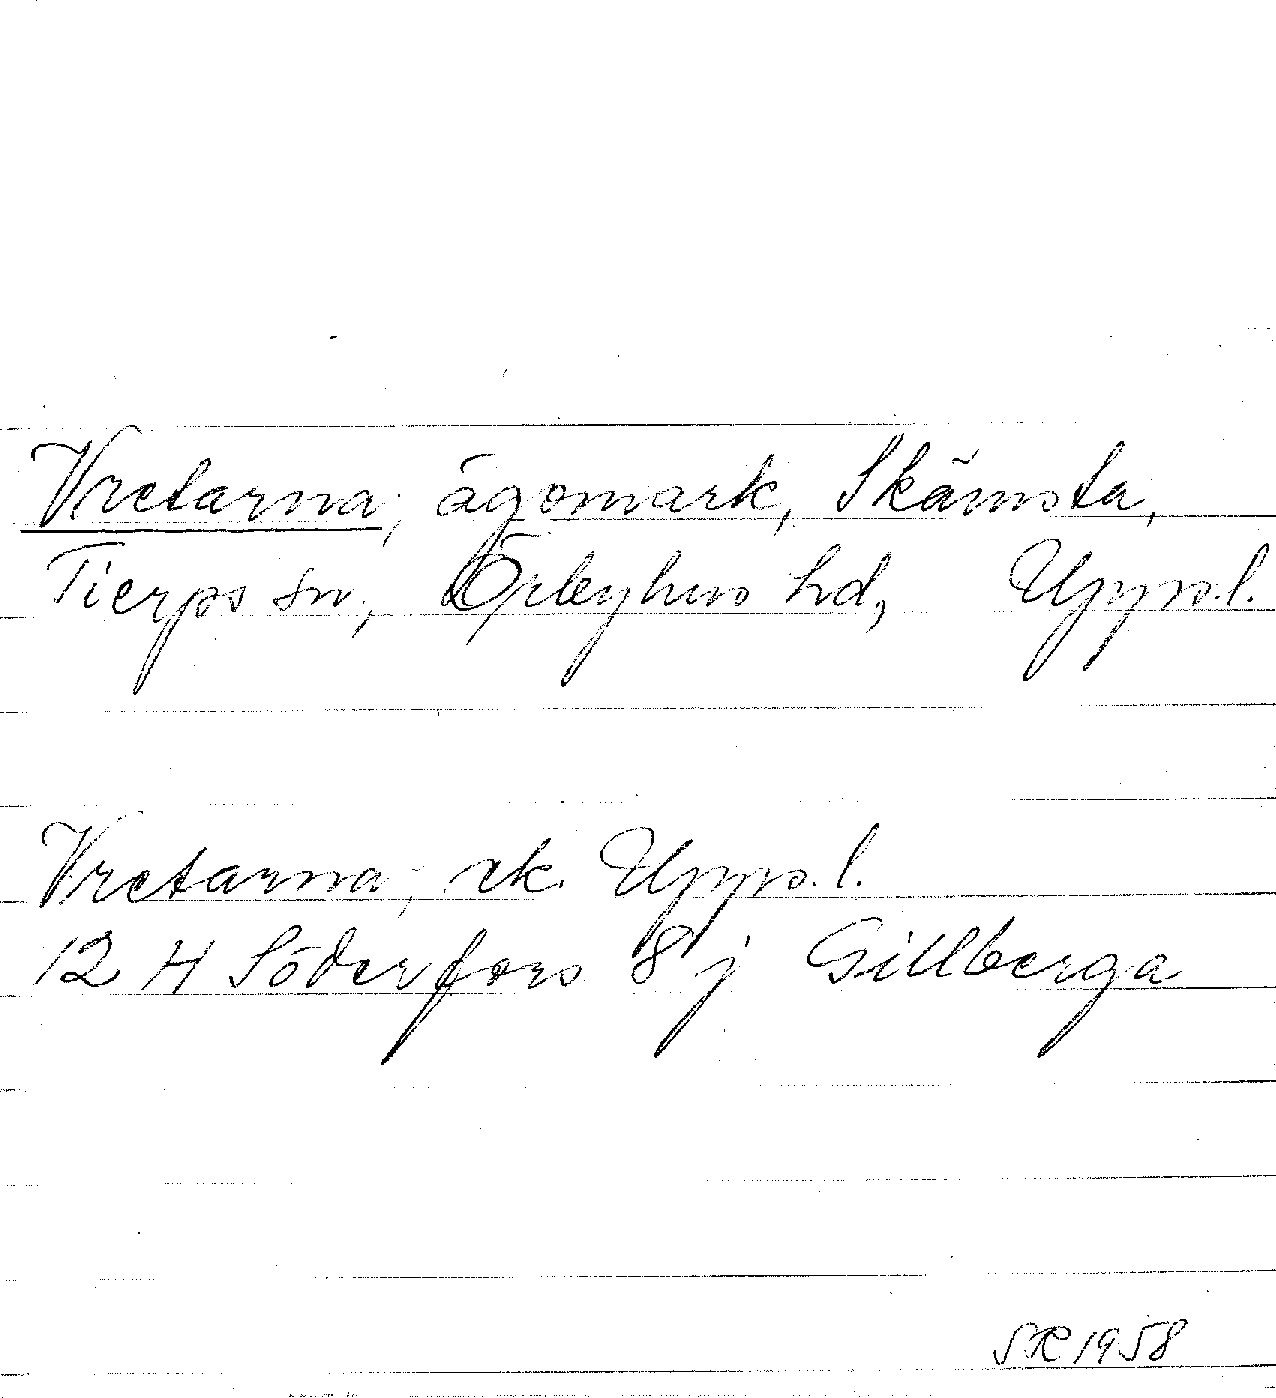 Vretarna, ägomark, Skämsta,
Tierps sn, Örbyhus hd, Upps.l.
Vretarna, ek. Upps.l.
12 H Söderfors 8 j Gillberga
SR 1958